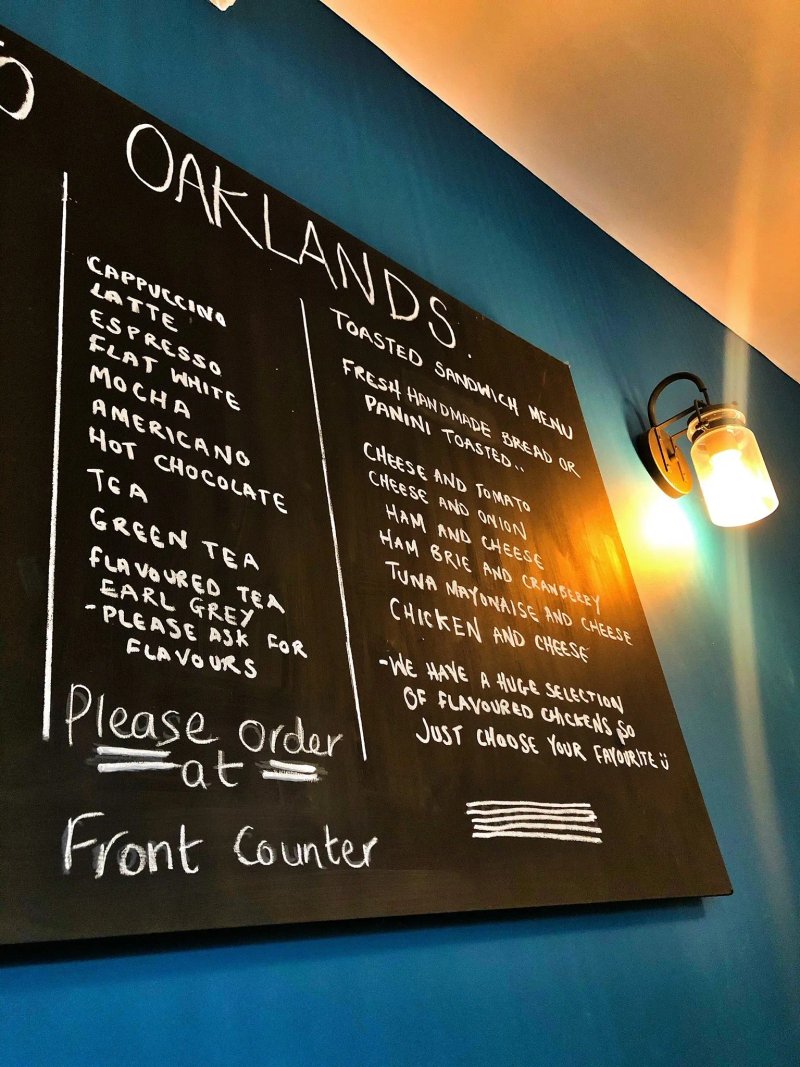 O OAKLANDS.
CAPPUCCINO
LATTE
ESPRESSO
FLAT WHITE
MOCHA
AMERICANO
HOT CHOCOLATE
TEA
GREEN TEA
FLAVOURED TEA
EARL GREY
-PLEASE ASK FOR
FLAVOURS
Please order
at
Front Counter
TOASTED SANDWICH MENU
FRESH HANDMADE BREAD OR
PANINI TOASTED..
CHEESE AND TOMATO
CHEESE AND ONION
HAM AND CHEESE
HAM BRIE AND CRANBERRY
TUNA MAYONAISE AND CHEESE
CHICKEN AND CHEESE
-WE HAVE A HUGE SELECTION
OF FLAVOURED CHICKENS SO
JUST CHOOSE YOUR FAVOURITE Ü